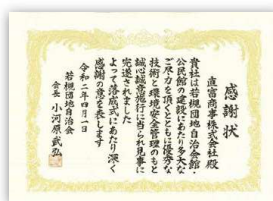 感謝状
直富商事株式会社殿
貴社は若槻団地自治会館・
公民館の建設にあたり多大な
ご尽力を頂くとともに優秀な
技術と環境安全管理のもと
誠心誠意施行に当られ見事に
完遂されました
よって落成式にあたり深く
感謝の意を表します
令和二年四月一日
若槻団地自治会
会長 小河原武弘